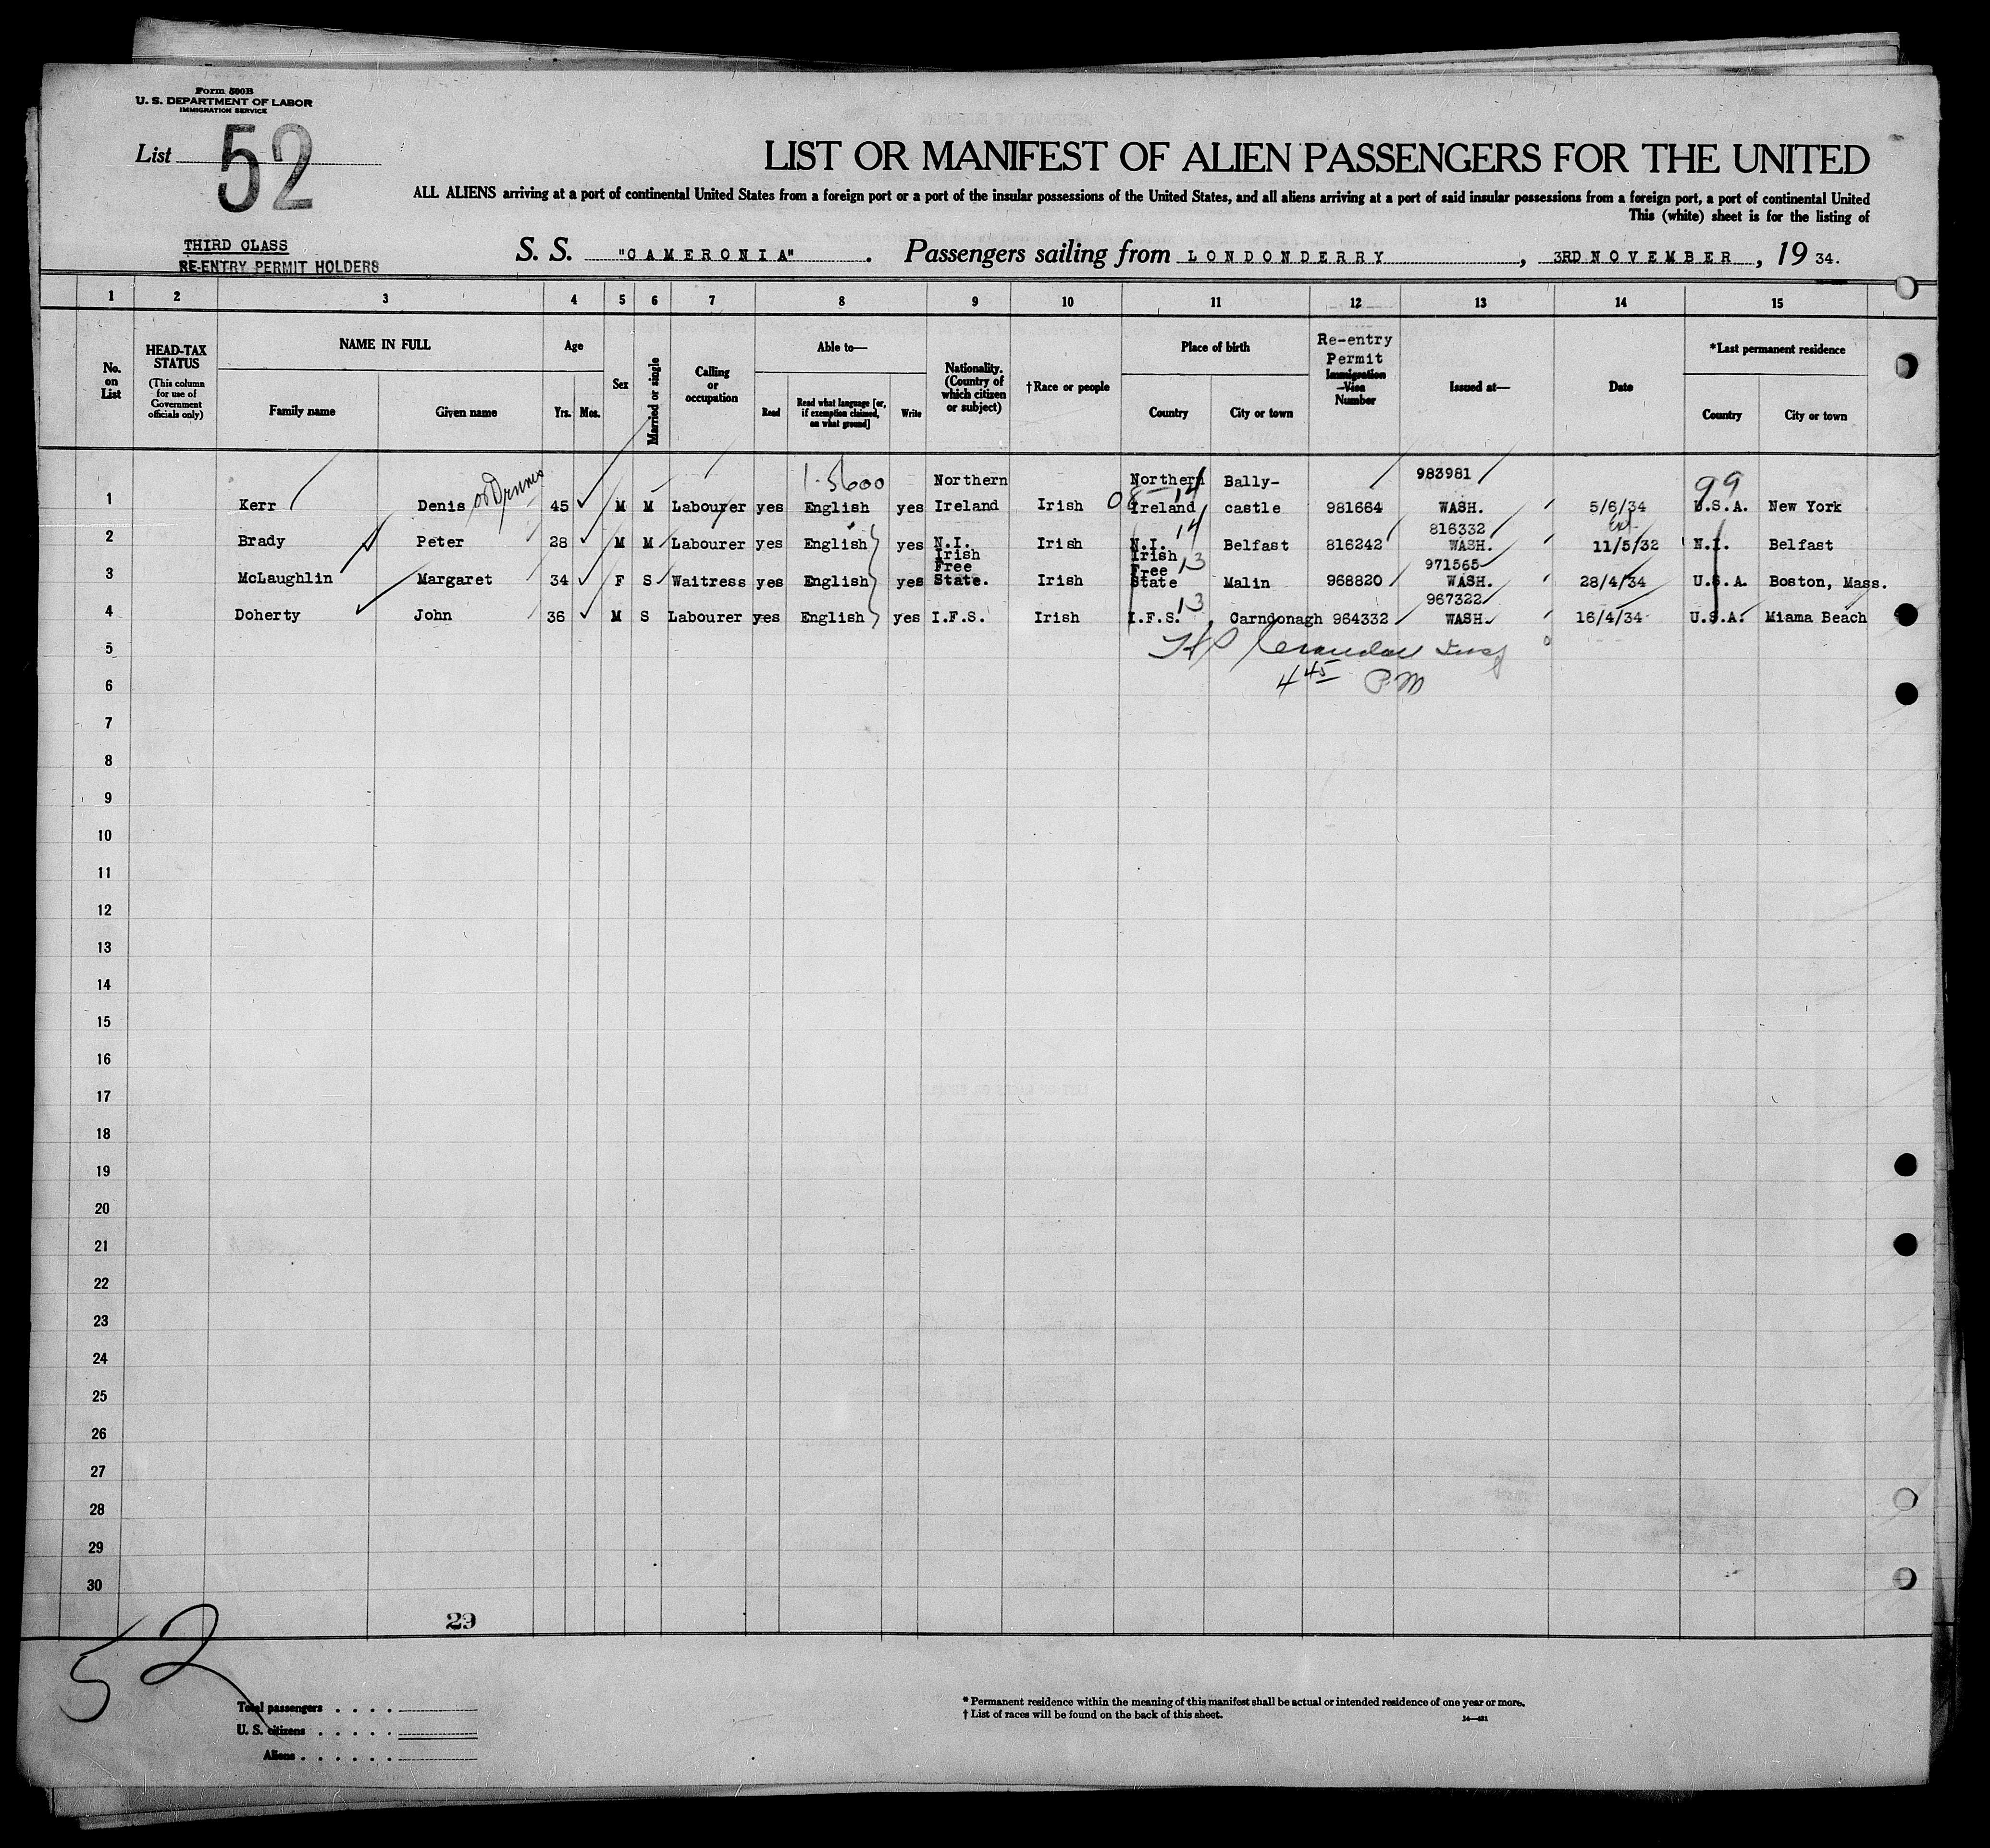 Form 500B
U. S. DEPARTMENT OF LABOR
IMMIGRATION SERVICE
List 52
LIST OR MANIFEST OF ALIEN PASSENGERS FOR THE UNITED
ALL ALIENS arriving at a port of continental United States from a foreign port or a port of the insular possessions of the United States, and all aliens arriving at a port of said insular possessions from a foreign port, a port of continental United
This (white) sheet is for the listing of
THIRD CLASS
RE-ENTRY PERMIT HOLDERS
S. S. "CAMERONIA". Passengers sailing from LONDONDERRY, 3RD NOVEMBER, 19 34.
1 2 3 4 5 6 7 8 9 10 11 12 13 14 15
No. on List
HEAD-TAX STATUS
(This column for use of Government officials only)
NAME IN FULL
Family name Given name
Age
Yrs. Mos.
Sex
Married or single
Calling or occupation
Able to—
Read
Read what language [or, if exemption claimed, on what ground]
Write
Nationality. (Country of which citizen or subject)
†Race or people
Place of birth
Country City or town
Re-entry Permit
Immigration Visa
Number
Issued at—
Date
*Last permanent residence
Country City or town
983981
99
1 Kerr Denis or 45 M M Labourer yes English yes Northern Ireland Irish 14 Northern Ireland Bally-castle 981664 WASH. 5/6/34 U.S.A. New York
816332
2 Brady Peter 28 M M Labourer yes English yes N.I. Irish 14 N.I. Belfast 816242 WASH. 11/5/32 N.I. Belfast
971565
3 McLaughlin Margaret 34 F S Waitress yes English yes Irish Free State. Irish 13 Irish Free State Malin 968820 WASH. 28/4/34 U.S.A. Boston, Mass.
967322
4 Doherty John 36 M S Labourer yes English yes I.F.S. Irish 13 I.F.S. Carndonagh 964332 WASH. 16/4/34 U.S.A. Miama Beach
5
6 4 45 PM
7
8
9
10
11
12
13
14
15
16
17
18
19
20
21
22
23
24
25
26
27
28
29
30
29
52
Total passengers
U. S. citizens
Aliens
* Permanent residence within the meaning of this manifest shall be actual or intended residence of one year or more.
† List of races will be found on the back of this sheet.